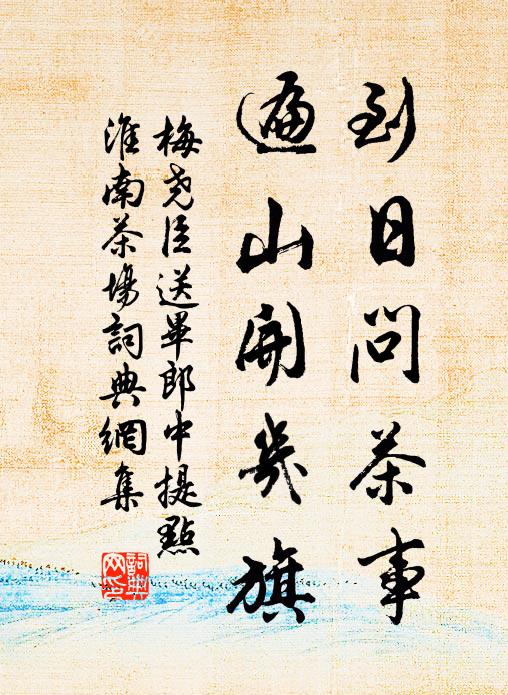 到日问茶事
遍山开几旗
梅尧臣送畢郎中提點
淮南茶場詞典網集
詞典
网